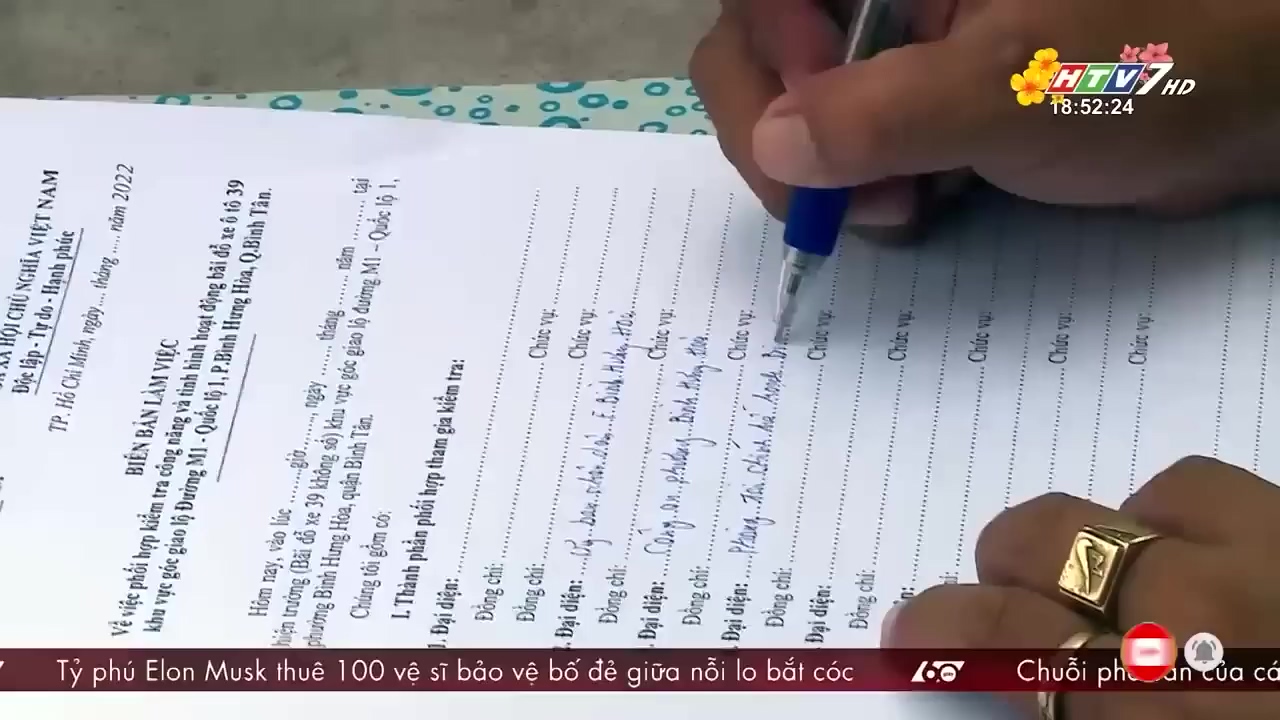 HTV7 HD
18:52:24
XÃ HỘI CHỦ NGHĨA VIỆT NAM
Độc lập - Tự do - Hạnh phúc
TP. Hồ Chí Minh, ngày... tháng ... năm 2022
BIÊN BẢN LÀM VIỆC
Về việc phối hợp kiểm tra công năng và tình hình hoạt động bãi đỗ xe ô tô 39
khu vực góc giao lộ Đường M1 - Quốc lộ 1, P.Bình Hưng Hòa, Q.Bình Tân.
Hôm nay, vào lúc ........giờ........, ngày ........ tháng ........ năm ........ tại
hiện trường (Bãi đỗ xe 39 không số) khu vực góc giao lộ đường M1 – Quốc lộ 1,
phường Bình Hưng Hòa, quận Bình Tân.
Chúng tôi gồm có:
I. Thành phần phối hợp tham gia kiểm tra:
1. Đại diện:
Đồng chí: Chức vụ:
Đồng chí: Chức vụ:
2. Đại diện: Ủy ban nhân dân P. Bình Hưng Hòa
Đồng chí: Chức vụ:
. Đại diện: Công an phường Bình Hưng Hoà
Đồng chí: Chức vụ:
. Đại diện: Phòng Tài chính kế hoạch
Đồng chí: Chức vụ:
. Đại diện:
Đồng chí: Chức vụ:
Chức vụ:
Chức vụ:
Chức vụ:
Tỷ phú Elon Musk thuê 100 vệ sĩ bảo vệ bố đẻ giữa nỗi lo bắt cóc
60
Chuỗi của